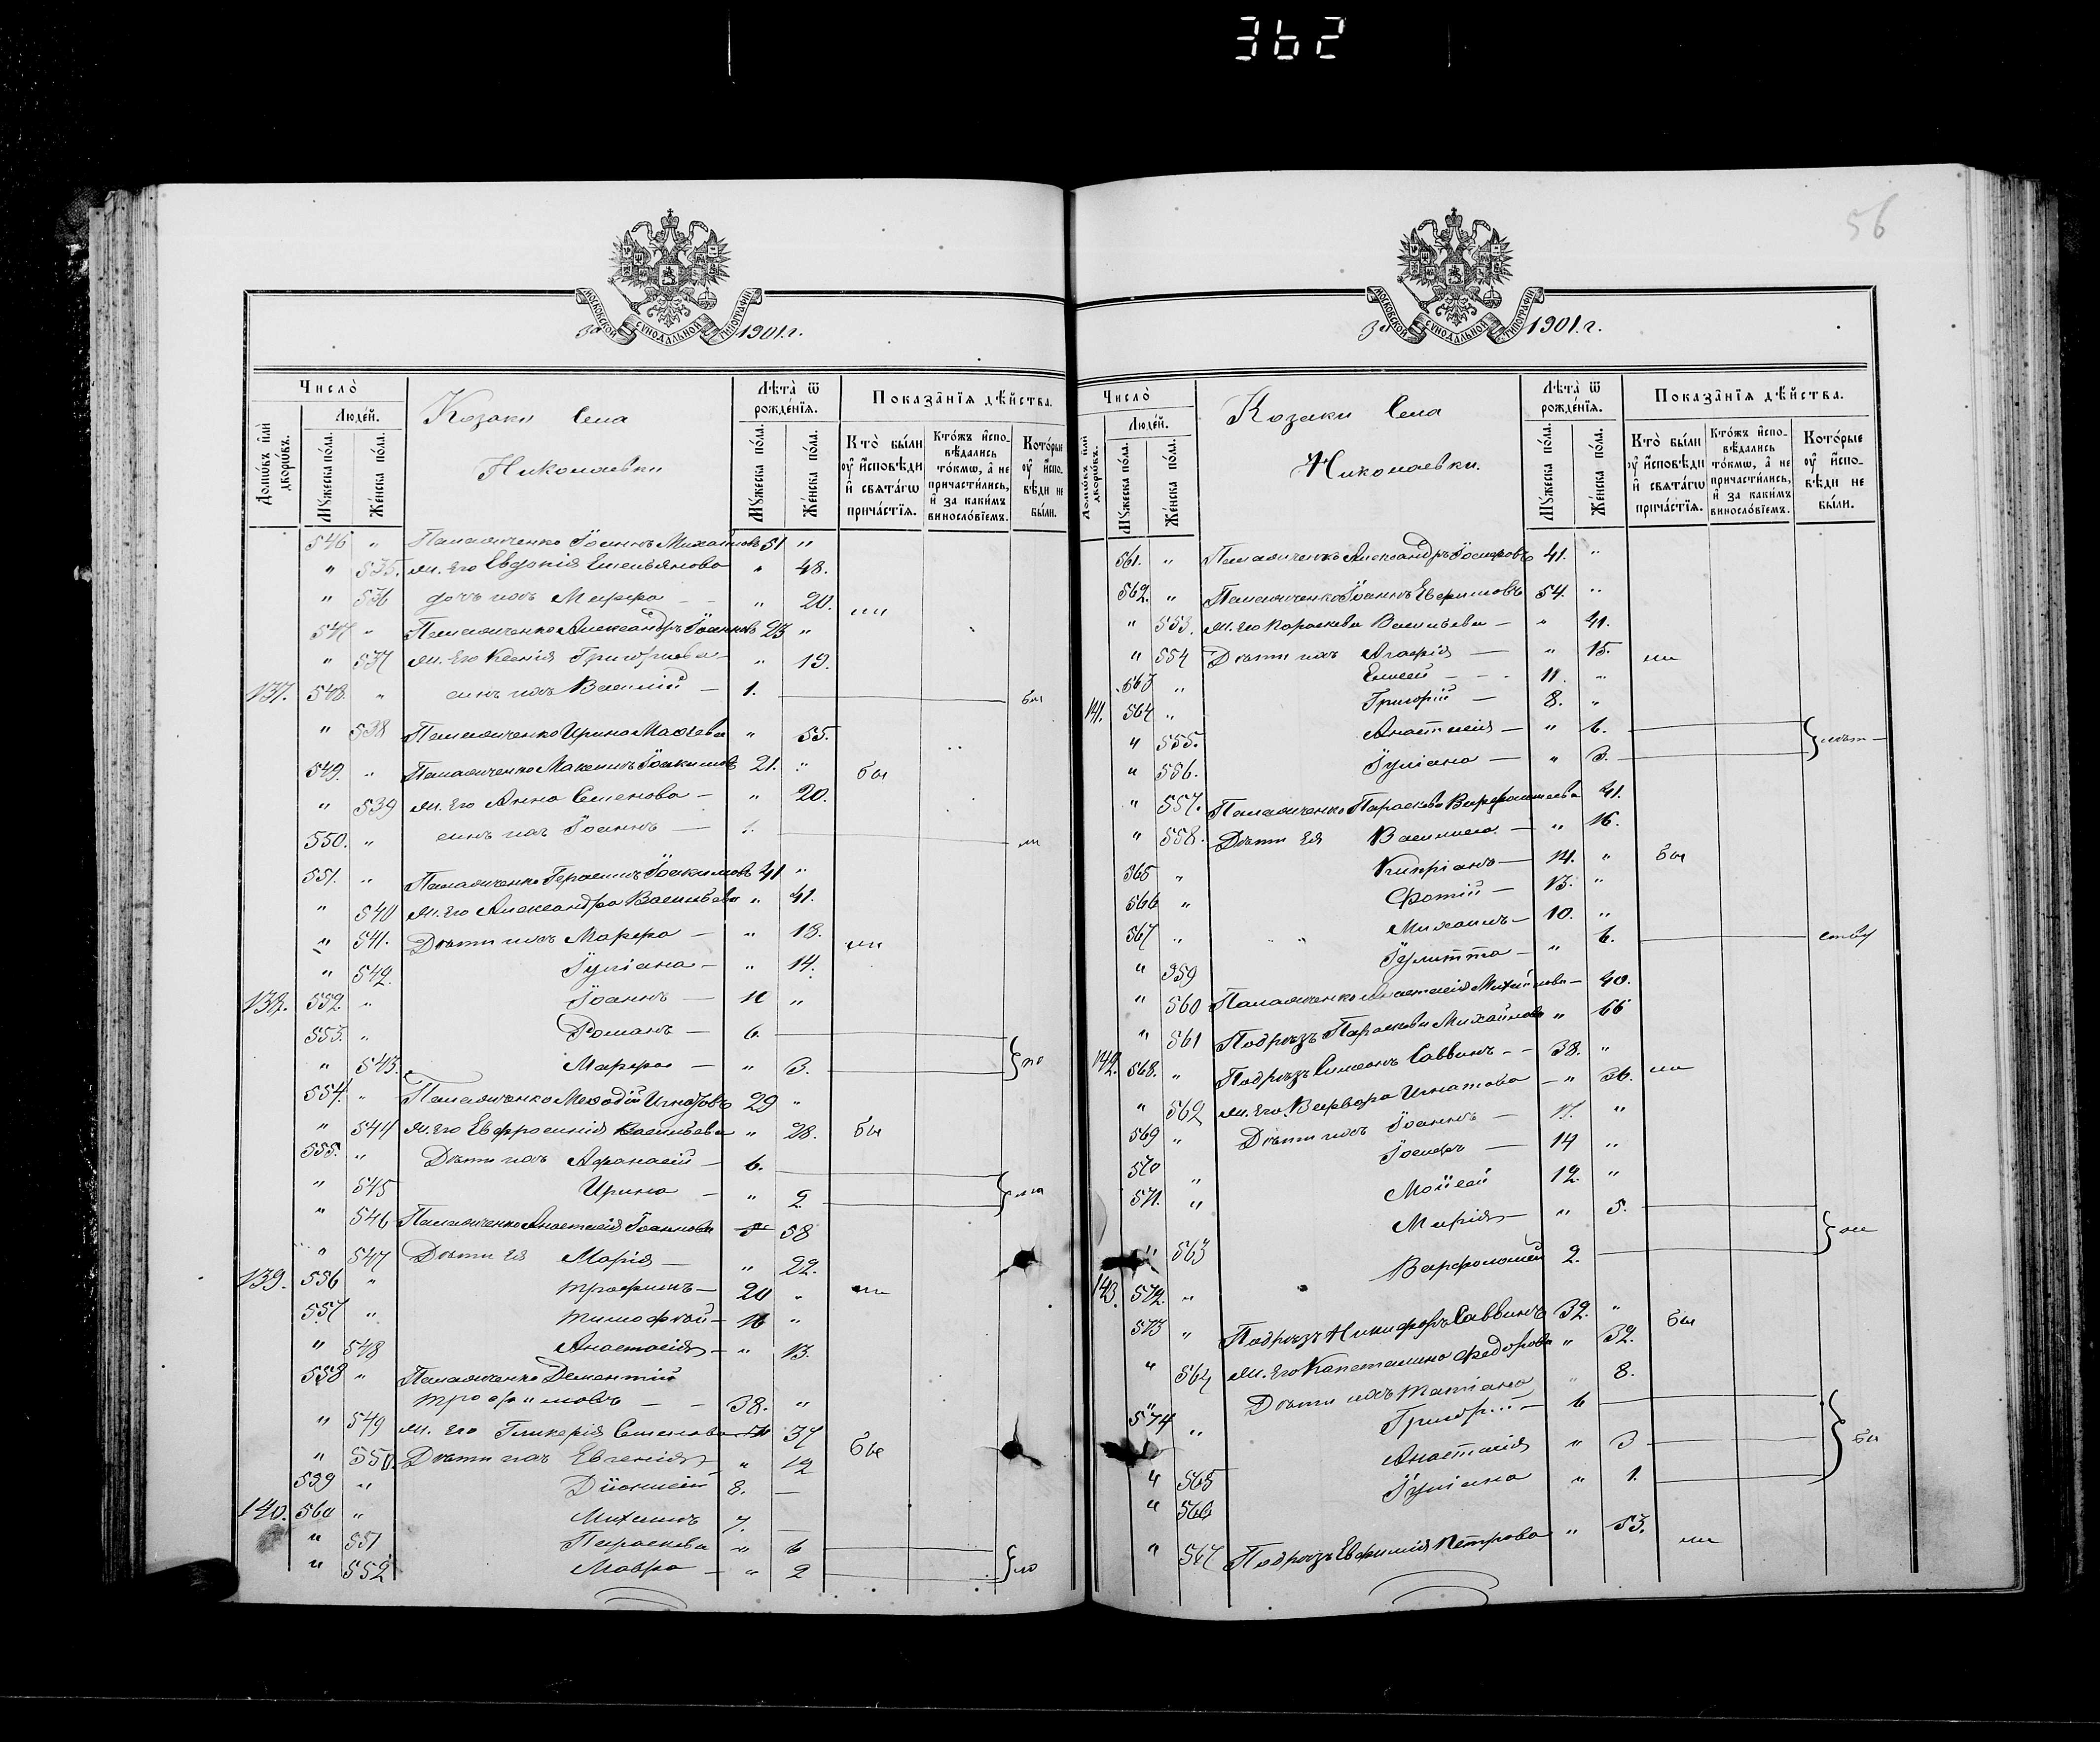 362
за 1901 г.
МОСКОВСКОЙ СУНОДАЛЬНОЙ ТИПОГРАФІИ
Число̀
Домѡвъ и҆лѝ дворѡвъ.
Люде́й.
Мꙋ́жеска по́ла.
Же́нска по́ла.
Козаки Села
Николаевки
Лѣта̀ ѿ рожде́нїѧ.
Мꙋ́жеска по́ла.
Же́нска по́ла.
Показа̑нїѧ дѣ́йства.
Кто̀ бы́ли ᲂу҆ и҆сповѣ́ди и҆ свѧта́гѡ прича́стїѧ.
Кто́жъ и҆сповѣ́дались то́кмѡ, а҆ не причасти́лись, и҆ за каки́мъ винословїемъ.
Кото́рые ᲂу҆ и҆сповѣ́ди не бы́ли.
546 " Паламаченко Іоаннъ Михайловъ 51 "
" 535. ж. его Евдокія Емельянова " 48.
" 536 дочь ихъ Марфа - - " 20. ли
547 " Паламаченко Александръ Іоанновъ 23 "
" 537 ж. его Ксенія Григорьева " 19.
137. 548. " сынъ ихъ Василій — 1. бы
" 538 Паламаченко Ирина " 55.
549. " Паламаченко Максимъ Іоакимовъ 21. " бы
" 539 ж. его Анна Семенова — " 20.
550. " сынъ ихъ Іоаннъ — 1. ли
551. " Паламаченко Герасимъ Іоакимовъ 41 "
" 540 ж. его Александра Васильева " 41.
" 541. Дѣти ихъ Марфа — " 18. ли
" 542. Іуліана — " 14.
138. 552. " Іоаннъ — 11 "
553. " Романъ — 6.
" 543. Марфа — " 3. по
554. " Паламаченко Меѳодій Игнатовъ 29 "
" 544 ж. его Евфросинія Васильева " 28. бы
555. " Дѣти ихъ Афанасій — 6.
" 545 Ирина — " 2
" 546 Паламаченко Анастасія Іоаннова 58
" 547 Дѣти ея Марія — " 22.
139. 556 " Трофимъ — 20 " ли
557 " Тимофѣй — 16 "
" 548 Анастасія — " 13.
558 " Паламаченко Дементій
Трофимовъ — - 38. "
" 549 ж. его Гликерія Семенова 37
" 550. Дѣти ихъ Евгенія " 12 бы
559 " Діонисій 8. —
140. 560 " Михаилъ 7. —
" 551 Параскева " 6
" 552 Мавра — " 2 ло
56
за 1901 г.
МОСКОВСКОЙ СУНОДАЛЬНОЙ ТИПОГРАФІИ
Число̀
Домѡвъ и҆лѝ дворѡвъ.
Люде́й.
Мꙋ́жеска по́ла.
Же́нска по́ла.
Козаки Села
Николаевки.
Лѣта̀ ѿ рожде́нїѧ.
Мꙋ́жеска по́ла.
Же́нска по́ла.
Показа̑нїѧ дѣ́йства.
Кто̀ бы́ли ᲂу҆ и҆сповѣ́ди и҆ свѧта́гѡ прича́стїѧ.
Кто́жъ и҆сповѣ́дались то́кмѡ, а҆ не причасти́лись, и҆ за каки́мъ винословїемъ.
Кото́рые ᲂу҆ и҆сповѣ́ди не бы́ли.
561. " Паламаченко Александръ Іосифовъ 41. "
562. " Паламаченко Іоаннъ Евфимовъ 54. "
" 553. ж. его Параскева Васильева — " 41.
" 554 Дѣти ихъ Агафія — " 15. ли
563 " Елисей - - - 11. "
141. 564 " Григорій — 8. "
" 555. Анастасія — " 6.
" 556. Іуліана — " 3. лѣт
" 557. Паламаченко Параскева Варфоломеева 41.
" 558. Дѣти ея Василиса — " 16.
565 " Кипріанъ — 14. " бы
566 " Фотій — 13. "
567 " Михаилъ — 10. "
" 559 Іулитта — " 6.
" 560 Паламаченко Анастасія Михайлова — 40.
" 561 Подрѣзъ Параскева Михайлова " 66
142. 568. " Подрѣзъ Симеонъ Саввинъ - - 38. "
" 562 ж. его Варвара Игнатова — " 36. ли
569 " Дѣти ихъ Іоаннъ — 17. "
570 " Іосифъ — 14 "
571. " Моѵсей 12. "
" 563 Марія — " 5.
143. 572. " Варфоломей 2.
573 " Подрѣзъ Никифоръ Саввинъ 32. " бы
" 564 ж. его Капетолина Федорова " 32.
Дѣти ихъ Татіана " 8.
574 " Григорій — 6
" 565 Анастасія " 3 бы
" 566 Іуліана " 1.
" 567 Подрѣзъ Евфимія Петрова " 53. ли